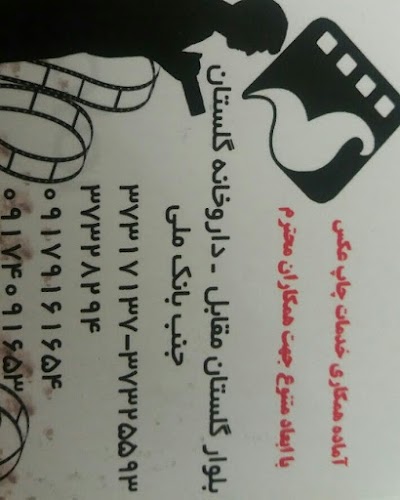 آماده همکاری خدمات چاپ عکس
با ابعاد متنوع جهت همکاران محترم
بلوار گلستان مقابل - داروخانه گلستان
جنب بانک ملی
۳۷۳۱۷۱۳۷-۳۷۳۲۵۵۹۳
۳۷۳۲۸۲۹۴
۰۹۱۷۹۱۶۱۶۵۴
۰۹۱۷۴۰۹۱۶۵۳